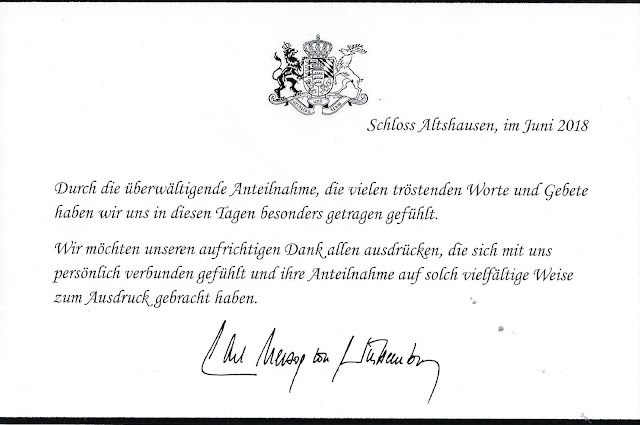 Schloss Altshausen, im Juni 2018
Durch die überwältigende Anteilnahme, die vielen tröstenden Worte und Gebete
haben wir uns in diesen Tagen besonders getragen gefühlt.
Wir möchten unseren aufrichtigen Dank allen ausdrücken, die sich mit uns
persönlich verbunden gefühlt und ihre Anteilnahme auf solch vielfältige Weise
zum Ausdruck gebracht haben.
Carl Herzog von Württemberg